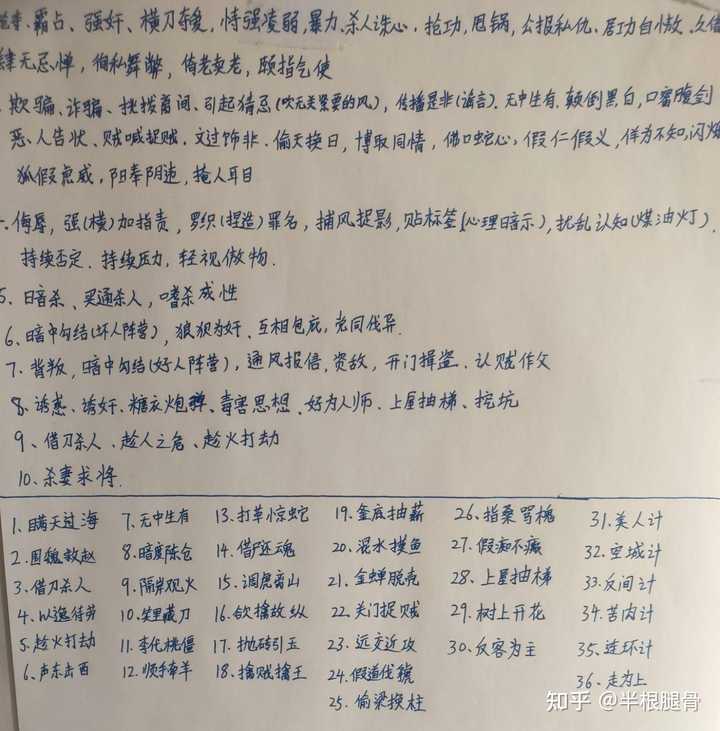 霸占、强奸、横刀夺爱，恃强凌弱，暴力，杀人诛心，抢功，甩锅，公报私仇，居功自傲、久借
肆无忌惮，徇私舞弊，倚老卖老，颐指气使
欺骗、诈骗、挑拨离间、引起猜忌(吹无关紧要的风)，传播是非(谣言)、无中生有、颠倒黑白，口蜜腹剑
恶人告状、贼喊捉贼、文过饰非、偷天换日，博取同情，佛口蛇心，假仁假义，佯为不知，闪烁
狐假虎威，阳奉阴违，掩人耳目
侮辱，强(横)加指责，罗织(捏造)罪名，捕风捉影，贴标签(心理暗示)，扰乱认知(煤油灯)，
持续否定、持续压力，轻视傲物.
5、暗杀、买通杀人，嗜杀成性
6、暗中勾结(坏人阵营)，狼狈为奸、互相包庇，党同伐异.
7、背叛，暗中勾结(好人阵营)，通风报信，资敌，开门揖盗、认贼作父
8、诱惑、诱奸、糖衣炮弹、毒害思想、好为人师、上屋抽梯、挖坑
9、借刀杀人、趁人之危、趁火打劫
10、杀妻求将.
1、瞒天过海 7、无中生有 13、打草惊蛇 19、釜底抽薪 26、指桑骂槐 31、美人计
2、围魏救赵 8、暗度陈仓 14、借尸还魂 20、混水摸鱼 27、假痴不癫 32、空城计
3、借刀杀人 9、隔岸观火 15、调虎离山 21、金蝉脱壳 28、上屋抽梯 33、反间计
4、以逸待劳 10、笑里藏刀 16、欲擒故纵 22、关门捉贼 29、树上开花 34、苦肉计
5、趁火打劫 11、李代桃僵 17、抛砖引玉 23、远交近攻 30、反客为主 35、连环计
6、声东击西 12、顺手牵羊 18、擒贼擒王 24、假道伐虢 36、走为上
25、偷梁换柱
知乎 @半根腿骨